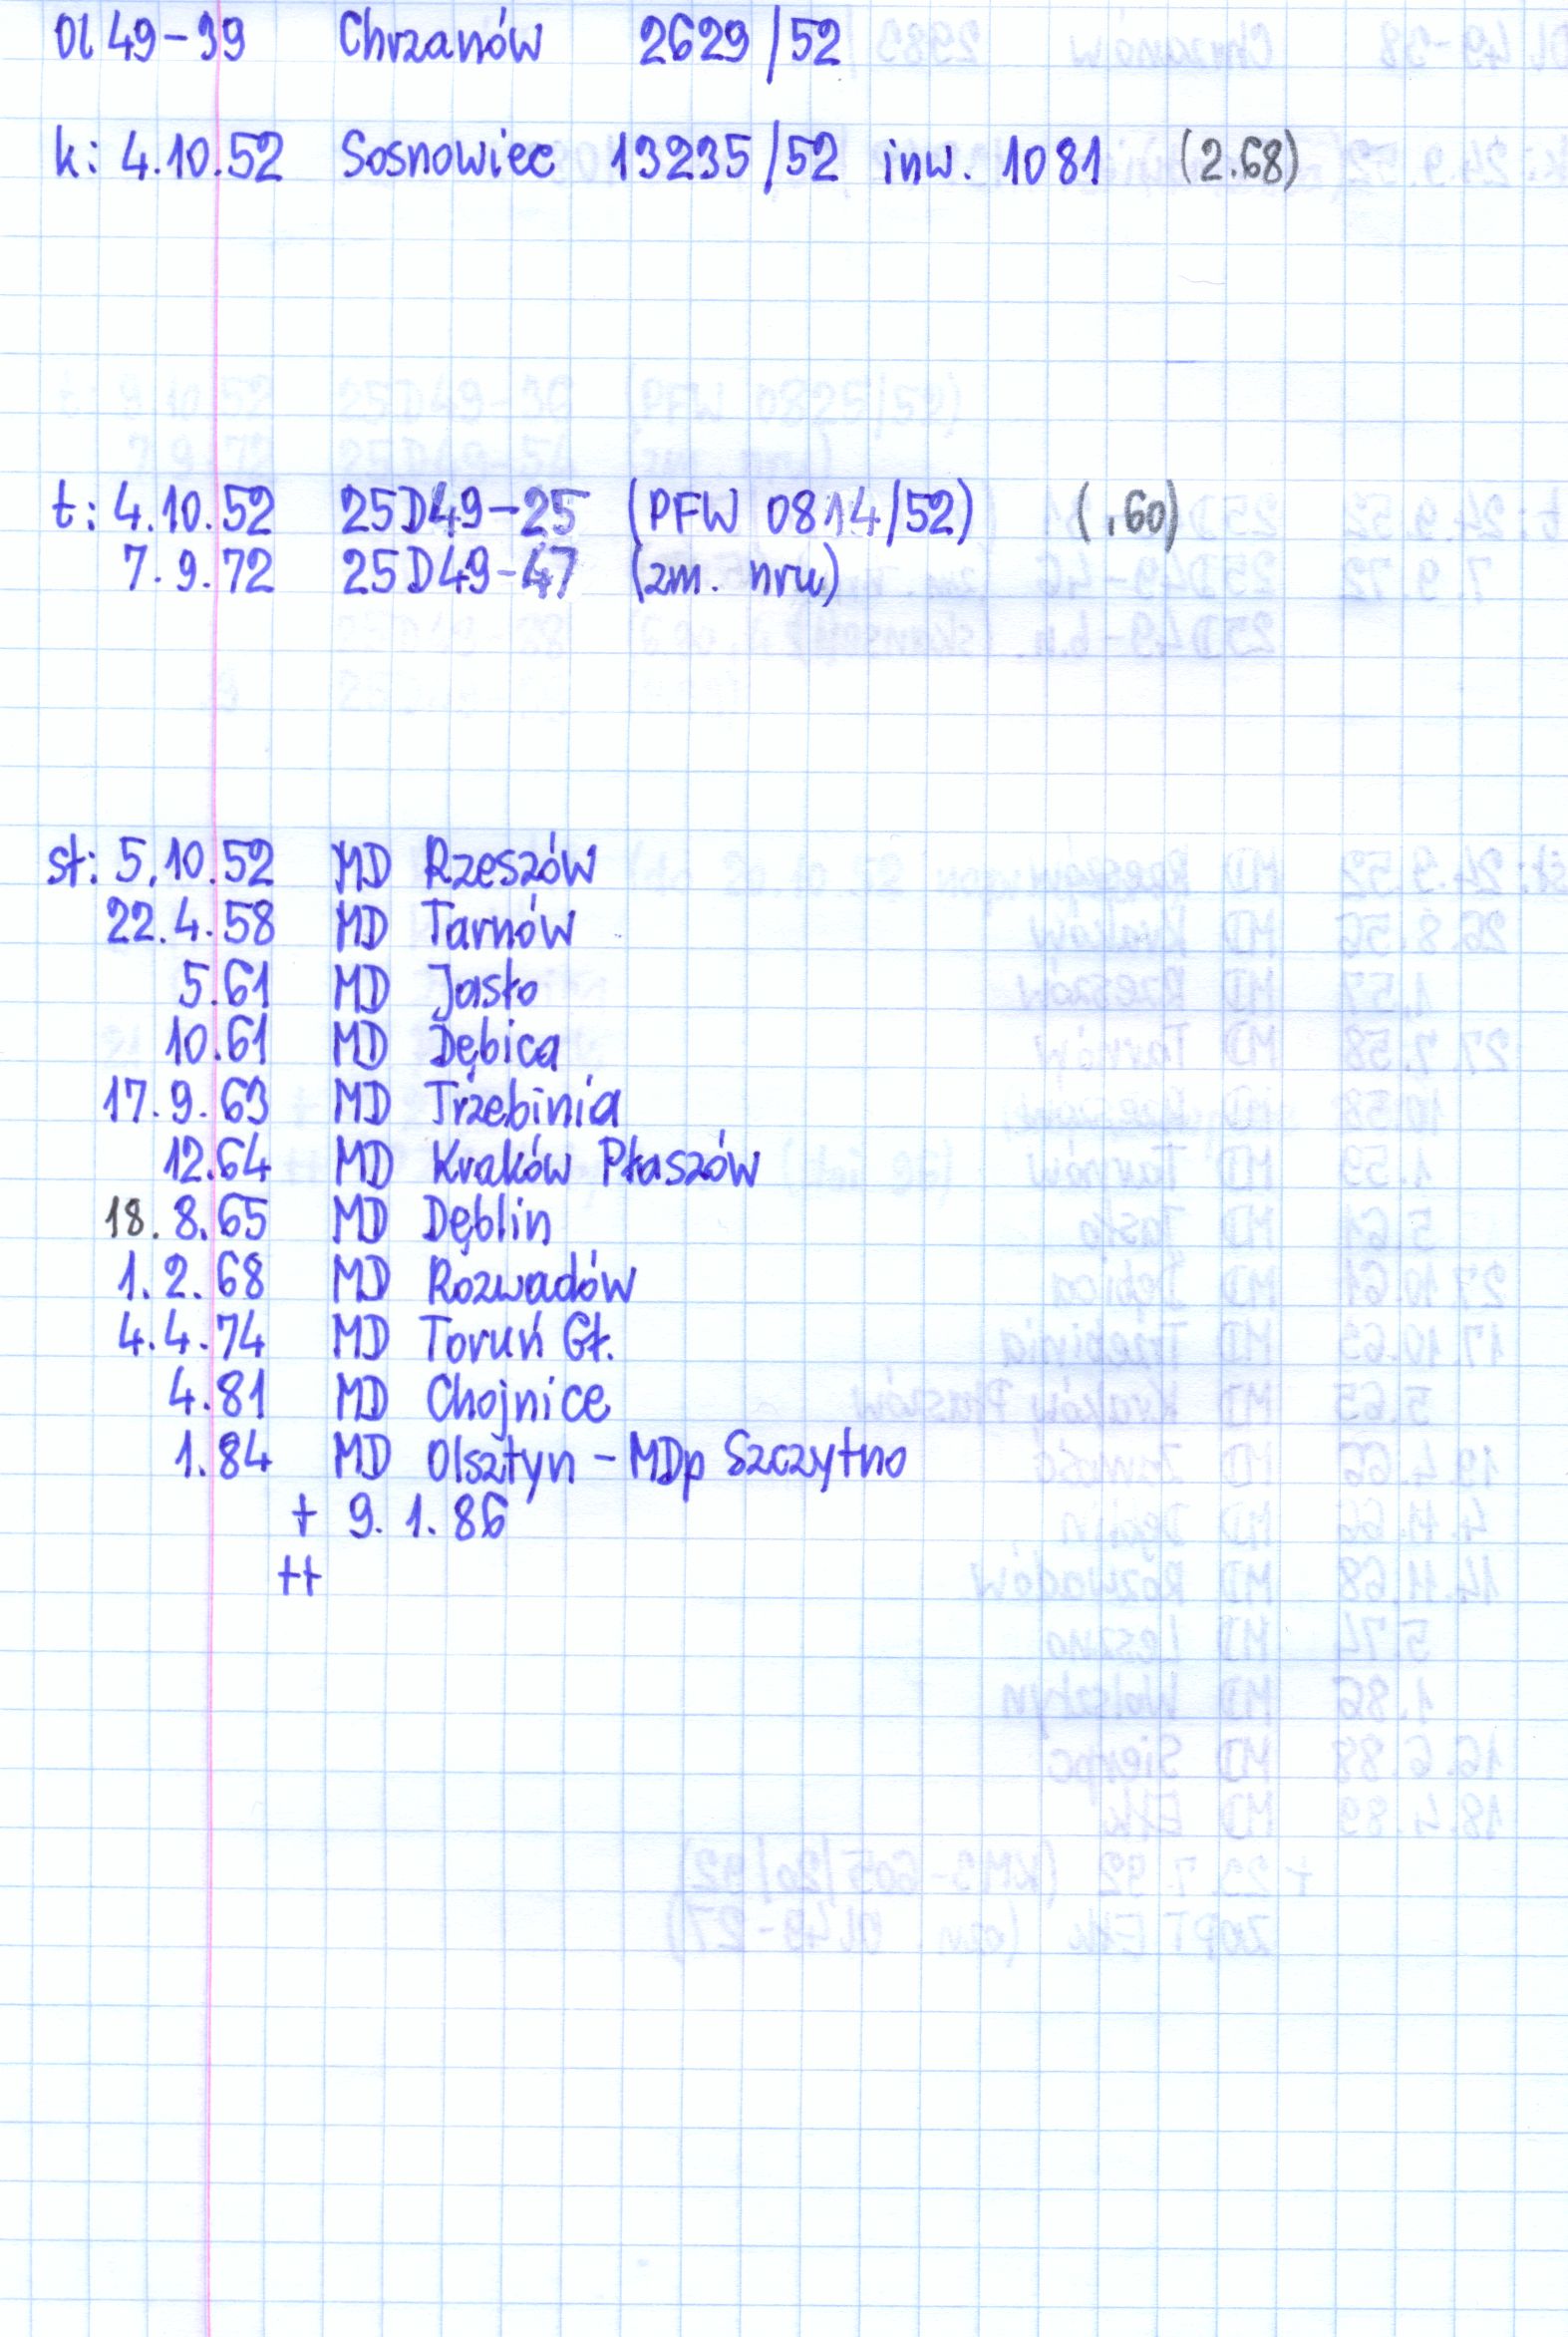 Ol 49-39 Chrzanów 2629/52
k: 4.10.52 Sosnowiec 13235/52 inw. 1081 (2.68)
t: 4.10.52 25D49-25 (PFW 0814/52) (.60)
7.9.72 25D49-47 (zm. nru)
st: 5.10.52 MD Rzeszów
22.4.58 MD Tarnów
5.61 MD Jasło
10.61 MD Dębica
17.9.63 MD Trzebinia
12.64 MD Kraków Płaszów
18.8.65 MD Dęblin
1.2.68 MD Rozwadów
4.4.74 MD Toruń Gł.
4.81 MD Chojnice
1.84 MD Olsztyn - MDp Szczytno
+ 9.1.86
++